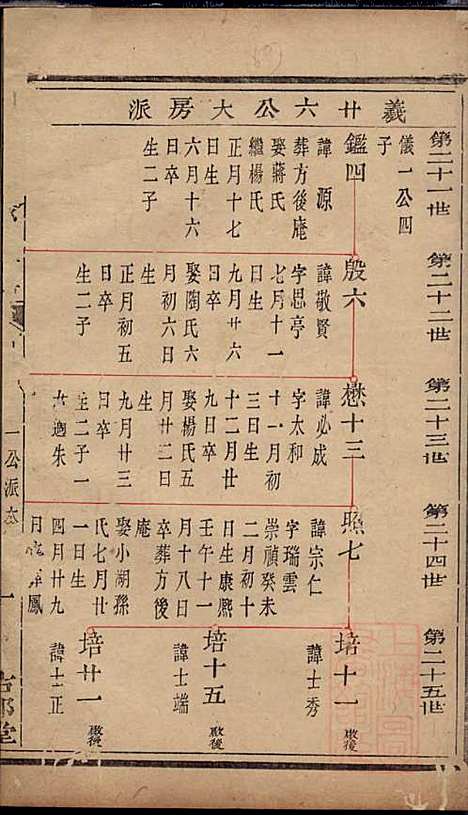 義廿六公大房派
第二十一世
儀一公四
子
鑑四
諱源
葬方後庵
娶蔣氏
繼楊氏
正月十七
日生
六月十六
日卒
生二子
第二十二世
殷六
諱敬賢
字思亭
七月十一
日生
九月廿六
日卒
娶陶氏六
月初六日
生
正月初五
日卒
生二子
第二十三世
懋十三
諱必成
字太和
十一月初
三日生
十二月廿
九日卒
娶楊氏五
月廿二日
生
九月廿三
日卒
生二子一
女適朱
第二十四世
照七
諱宗仁
字瑞雲
崇禎癸未
二月初十
日生康熙
壬午十一
月十八日
卒葬方後
庵
娶小湖孫
氏七月廿
一日生
四月廿九
鳳
第二十五世
培十一
諱士秀
啟後
培十五
諱士端
啟後
培廿一
諱士正
啟後
一公派
一
堂